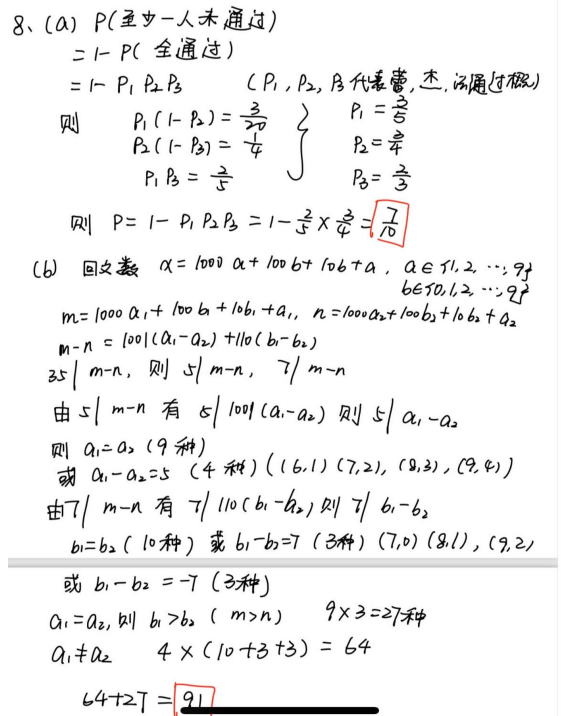 8、(a) P(至少一人未通过)
= 1- P( 全通过)
= 1- P₁ P₂ P₃ (P₁, P₂, P₃ 代表曹,杰,沅通过概)
则 P₁(1-P₂) = 3/20 P₁ = 3/5
P₂(1-P₃) = 1/4 P₂ = 3/4
P₁P₃ = 2/5 P₃ = 2/3
则 P = 1- P₁P₂P₃ = 1- 2/5 × 3/4 = 7/10
(b) 回文数 x = 1000a+100b+10b+a, a∈{1,2,…,9}
b∈{0,1,2,…,9}
m=1000a₁+100b₁+10b₁+a₁, n=1000a₂+100b₂+10b₂+a₂
m-n = 1001(a₁-a₂)+110(b₁-b₂)
35| m-n, 则 5| m-n, 7| m-n
由 5| m-n 有 5| 1001(a₁-a₂) 则 5| a₁-a₂
则 a₁=a₂ (9种)
或 a₁-a₂=5 (4种) ((6,1) (7,2), (8,3), (9,4))
由7| m-n 有 7| 110(b₁-b₂) 则 7| b₁-b₂
b₁=b₂ (10种) 或 b₁-b₂=7 (3种) (7,0) (8,1), (9,2)
或 b₁-b₂ = -7 (3种)
a₁=a₂, 则 b₁>b₂ (m>n) 9×3=27种
a₁≠a₂ 4×(10+3+3) = 64
64+27 = 91